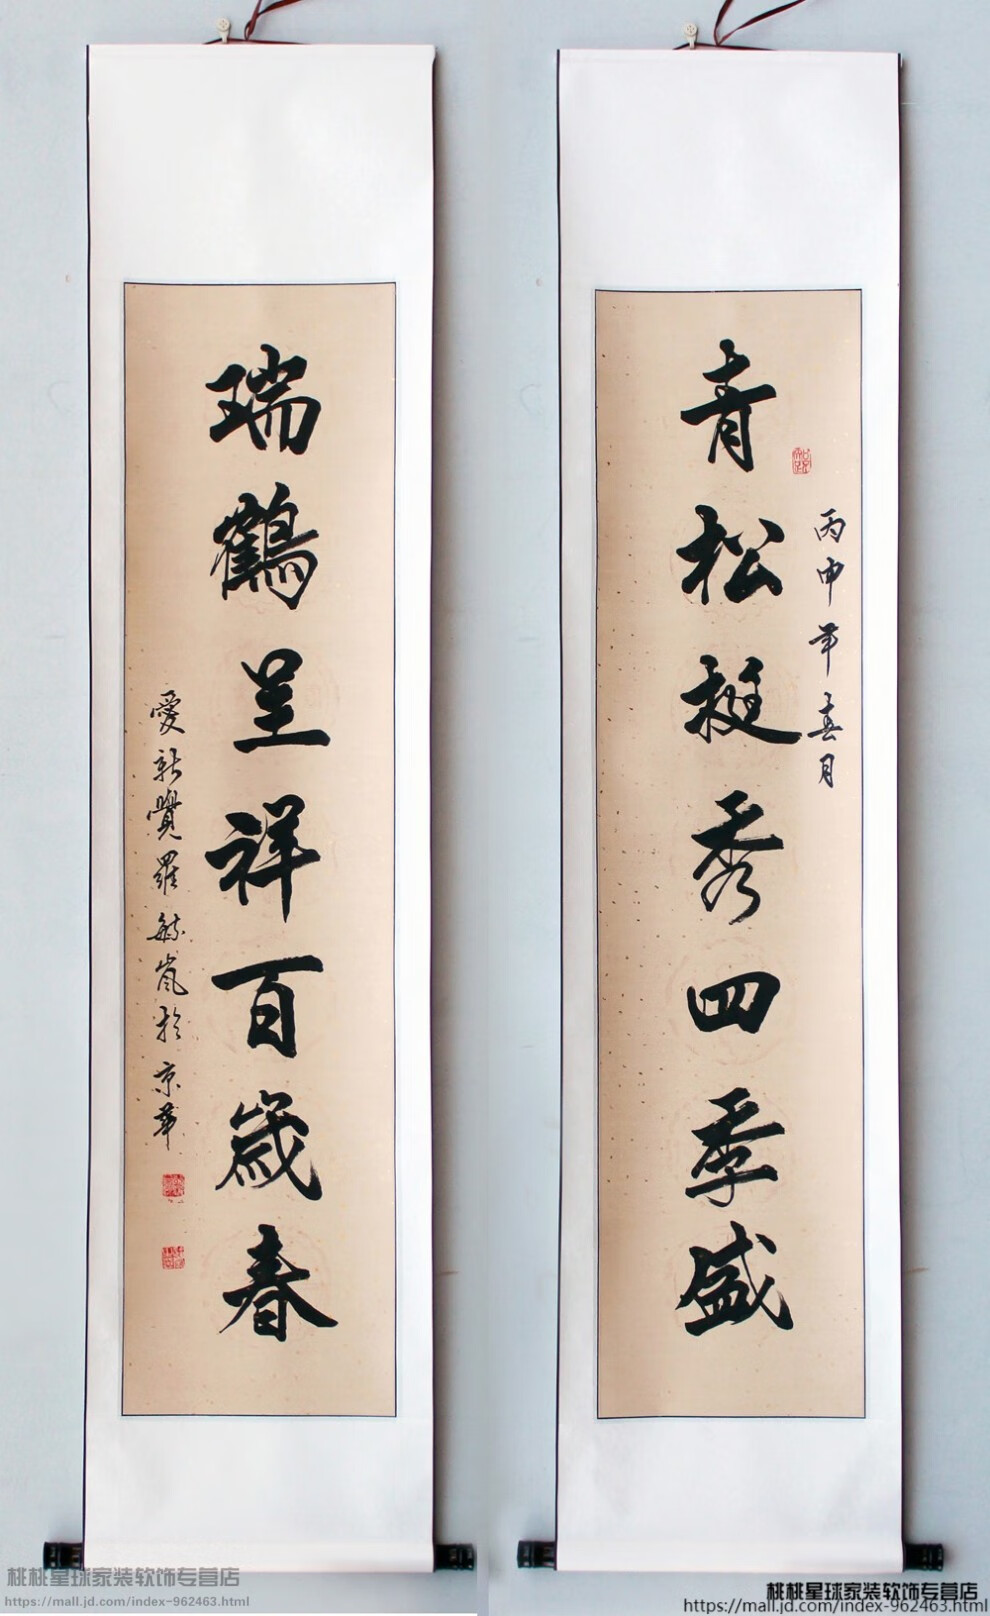 青松挺秀四季盛
丙申年春月
瑞鶴呈祥百歲春
愛新覺羅毓嵐於京華
桃桃星球家装软饰专营店
https://mall.jd.com/index-962463.html
桃桃星球家装软饰专营店
https://mall.jd.com/index-962463.html